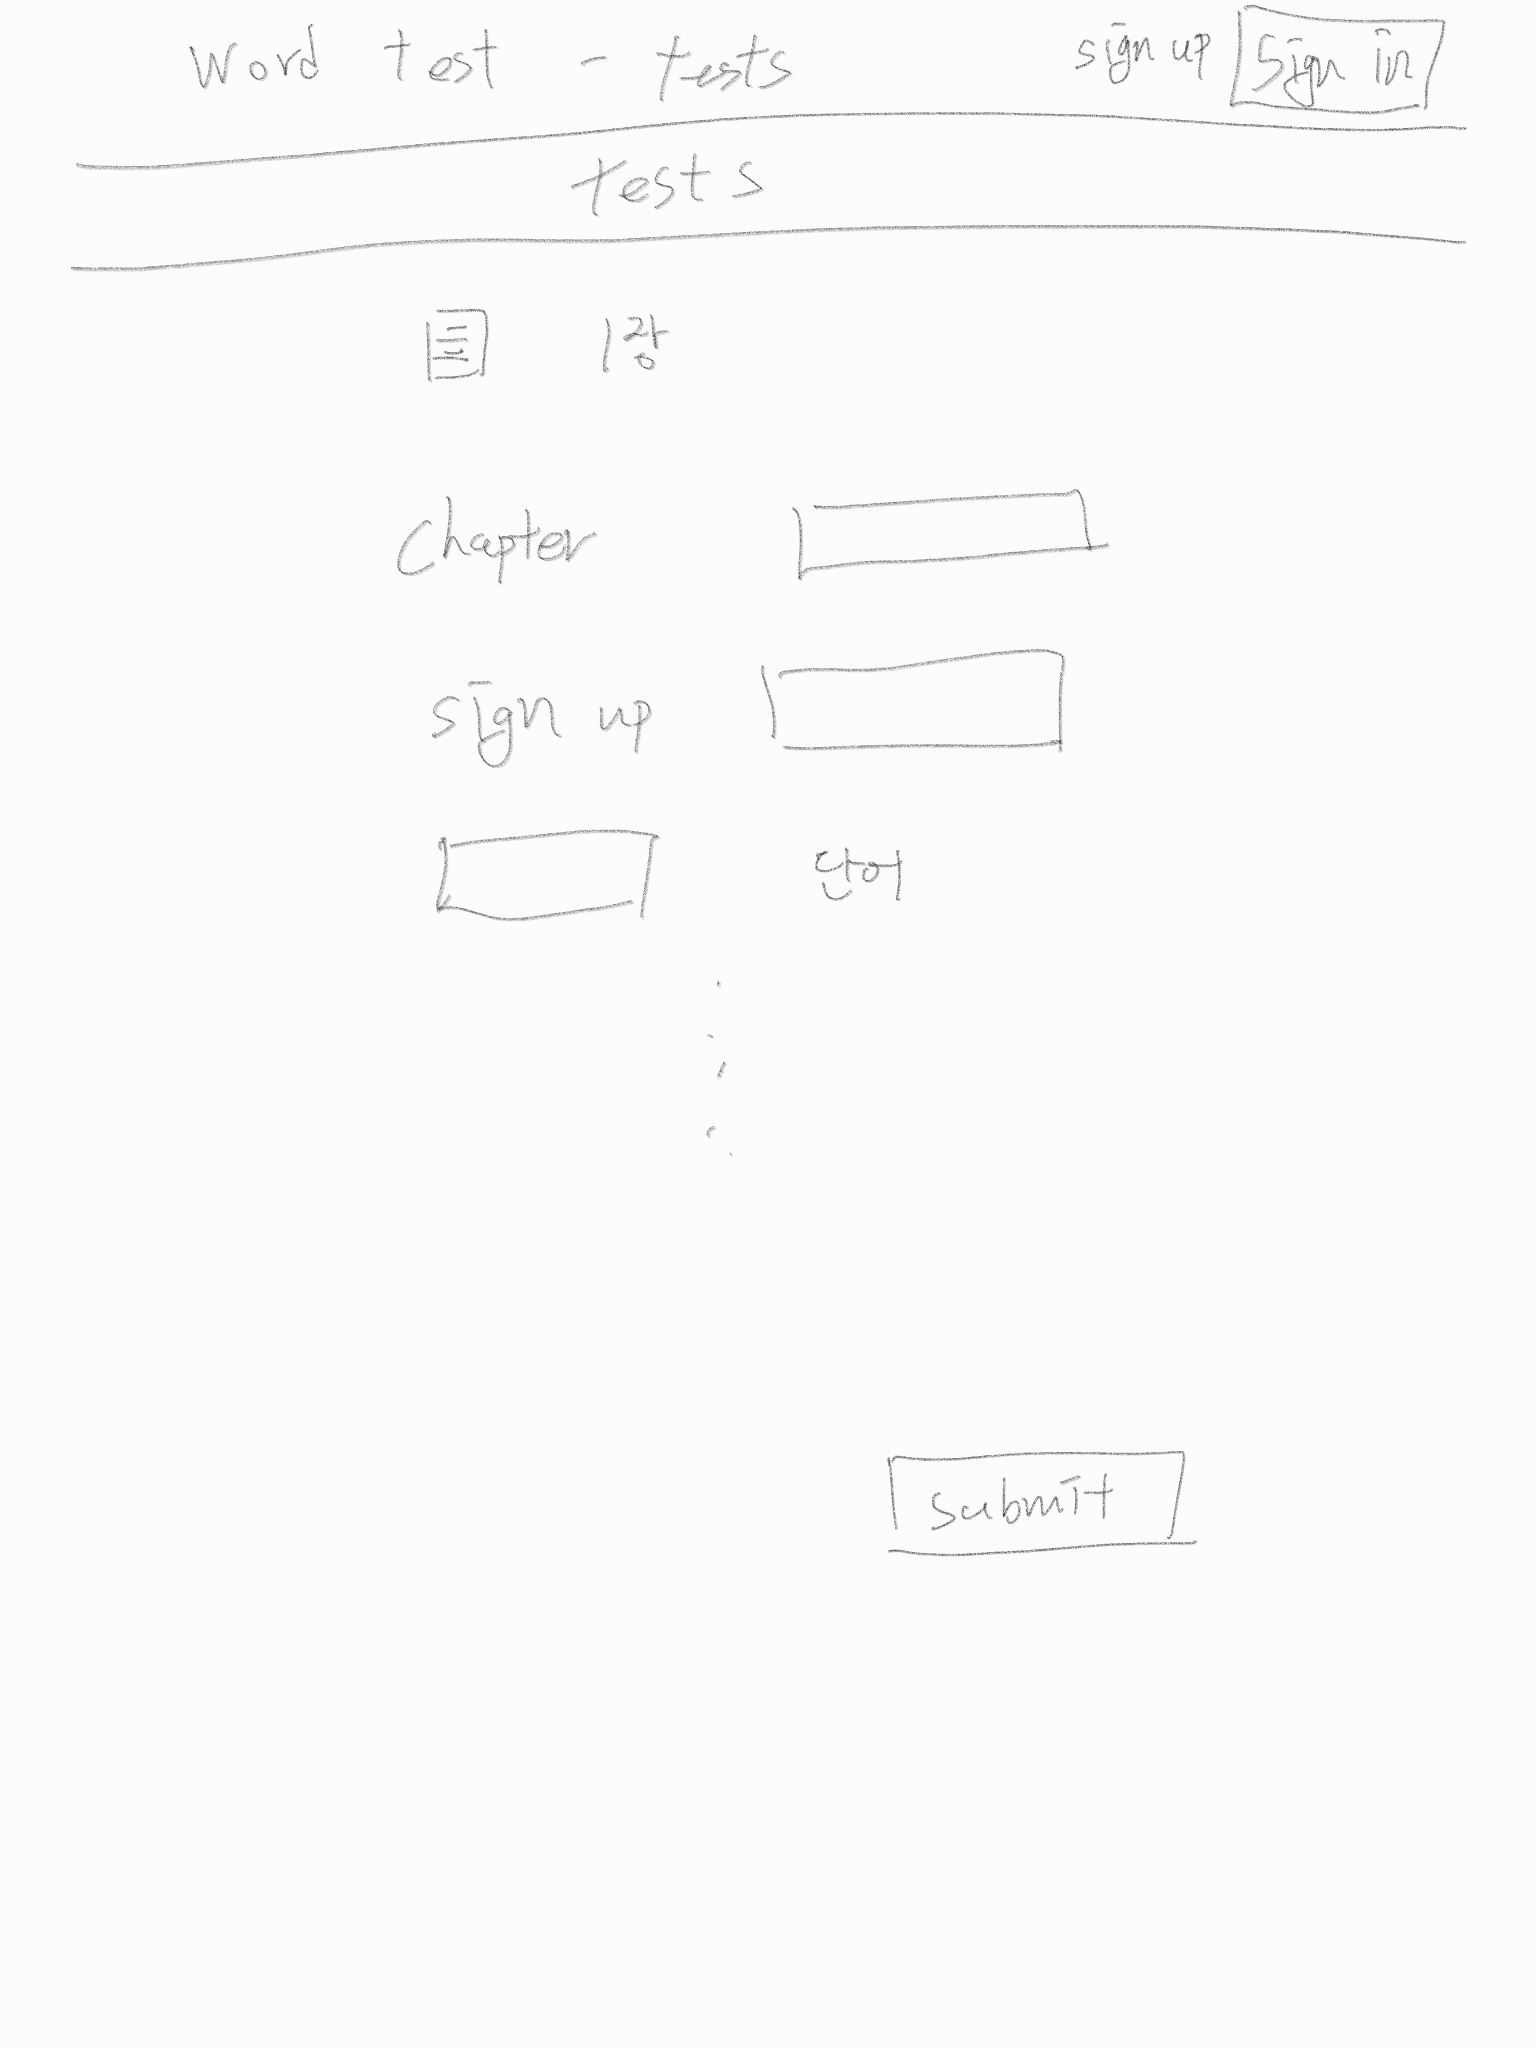 Word test - tests sign up Sign in
tests
1장
Chapter
sign up
단어
submit